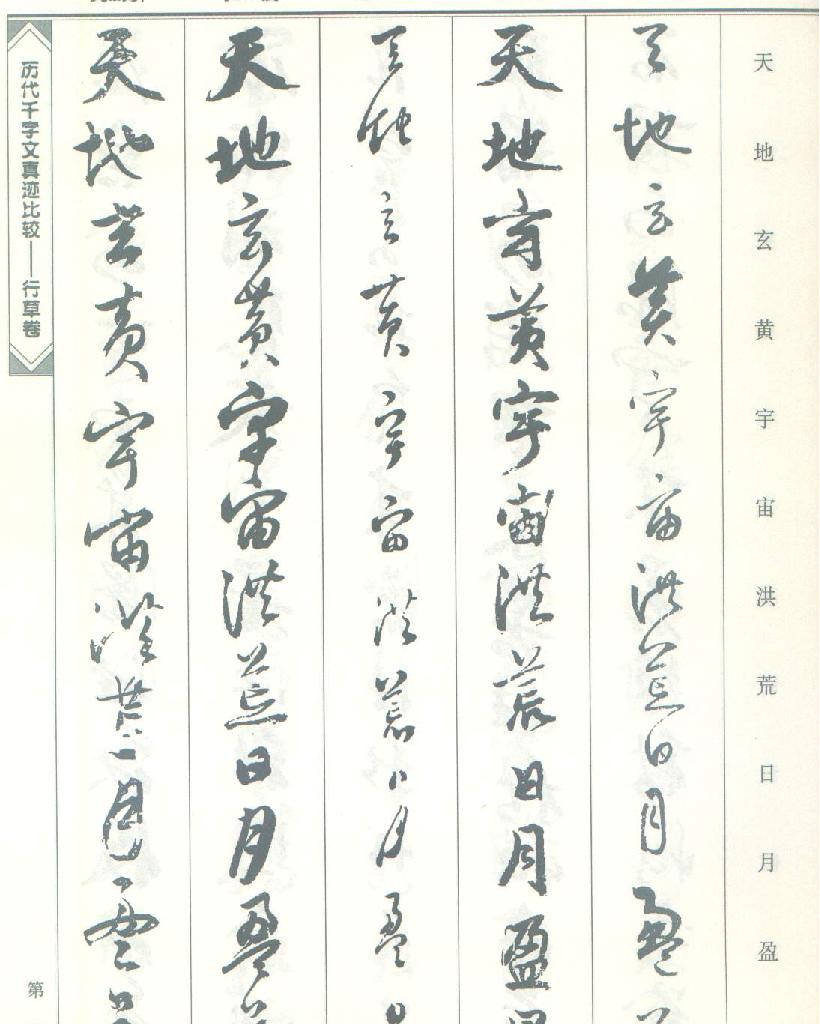 天地玄黄宇宙洪荒日月盈
天地玄黄宇宙洪荒日月盈
天地玄黄宇宙洪荒日月盈
天地玄黄宇宙洪荒日月盈
天地玄黄宇宙洪荒日月盈
天地玄黄宇宙洪荒日月盈
历代千字文真迹比较——行草卷
第